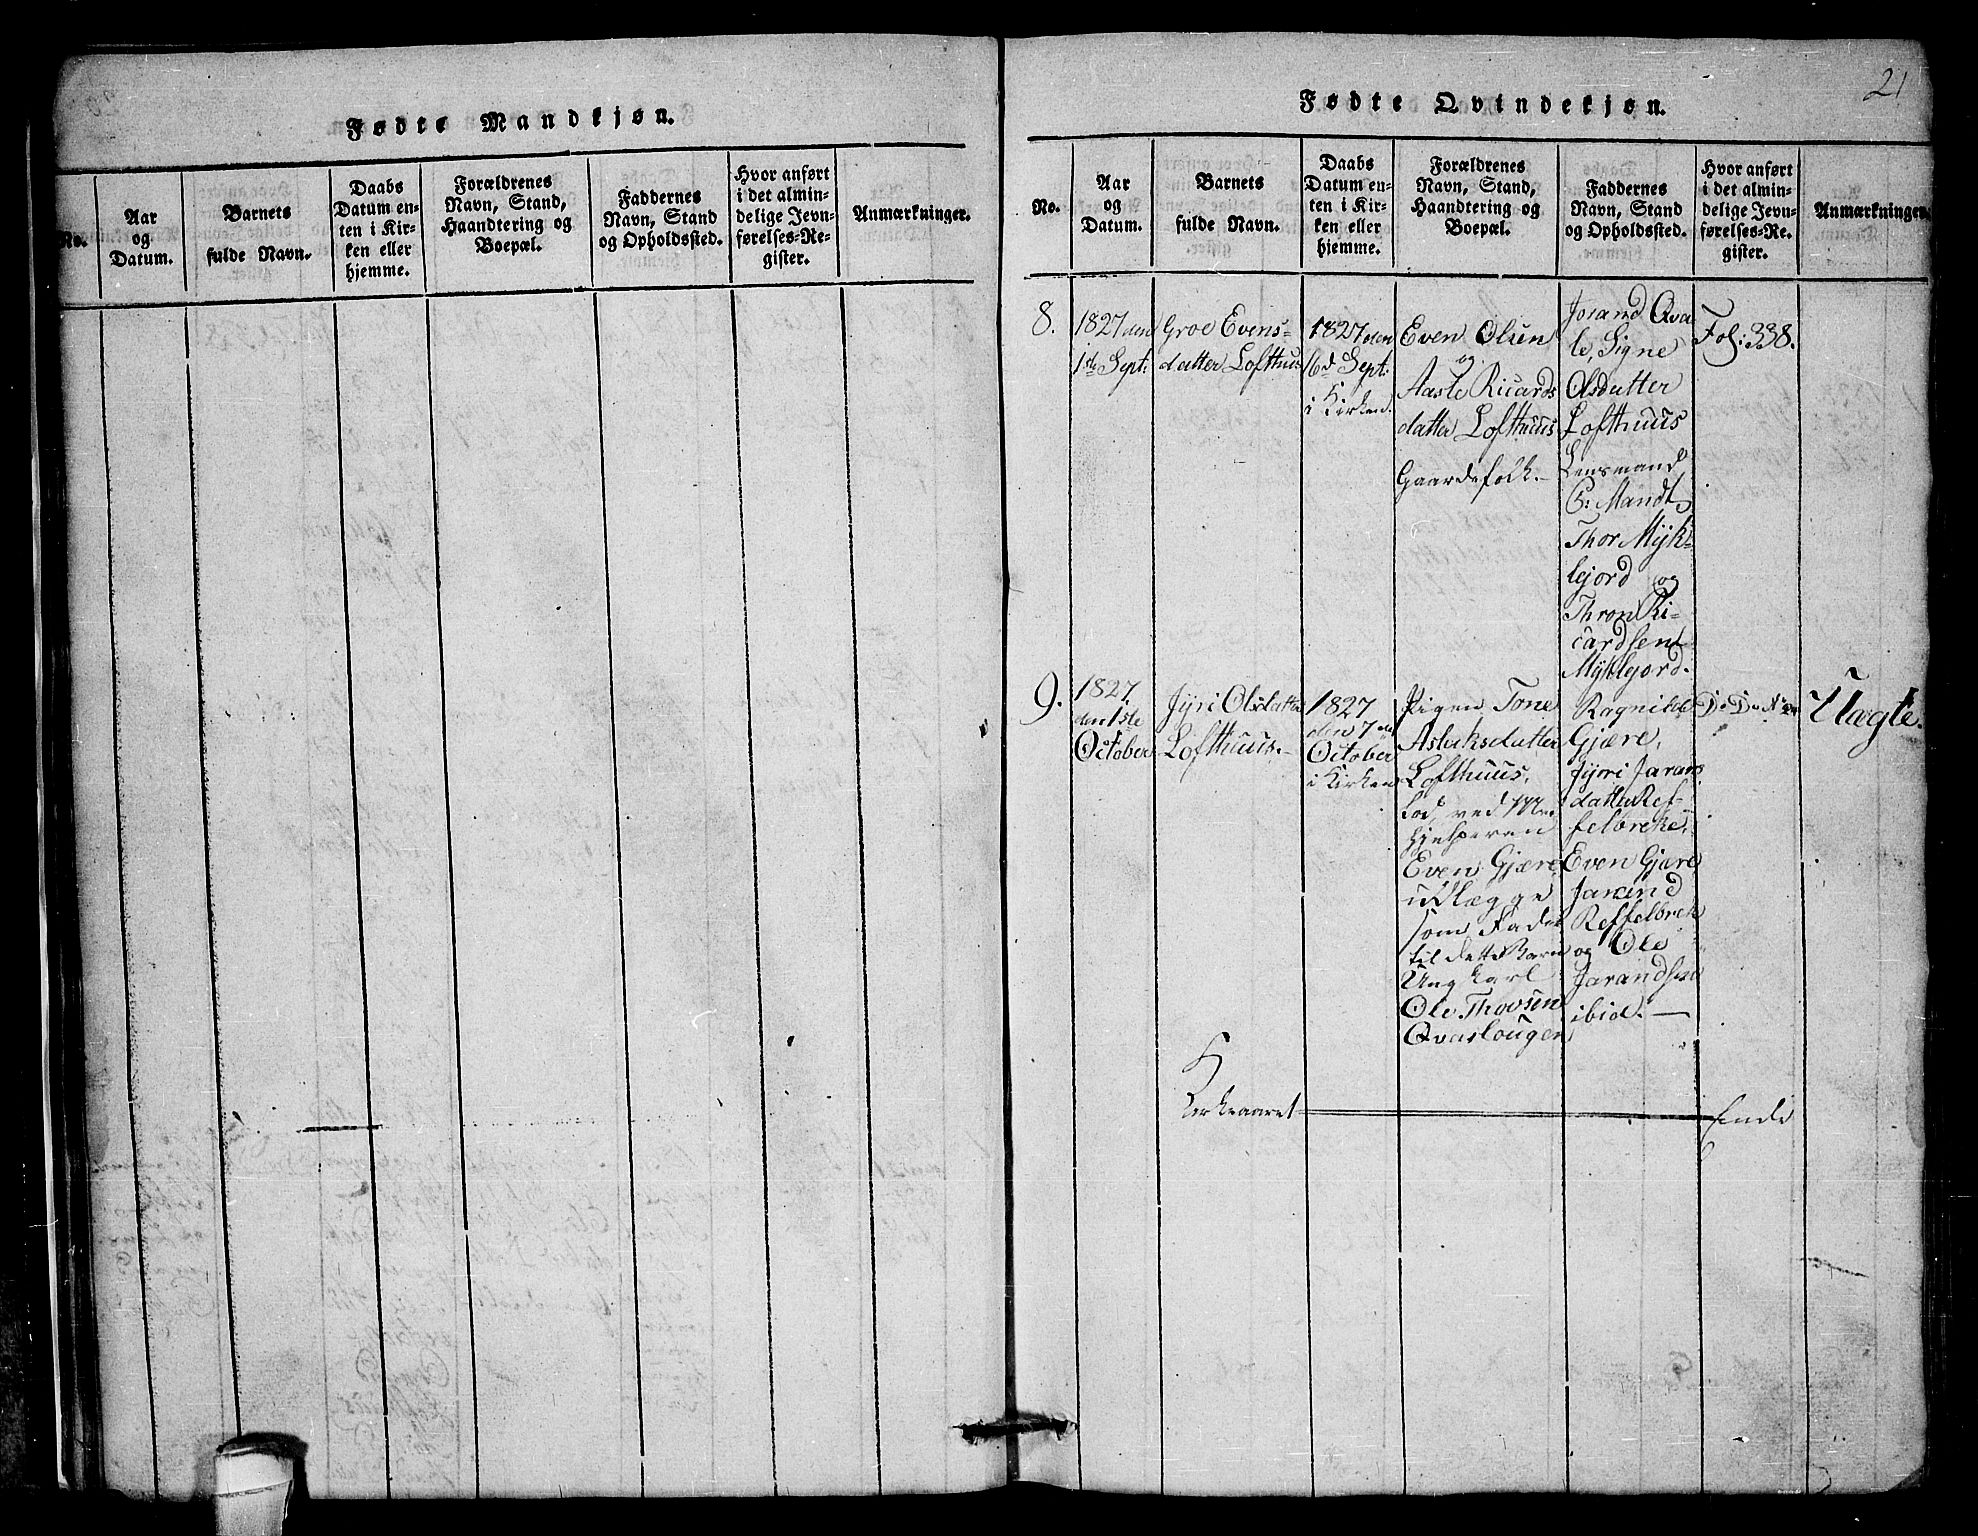 21
Fødte Mandkjøn.
No.
Aar
og
Datum.
Barnets
fulde Navn.
Daabs
Datum en-
ten i Kir-
ken eller
hjemme.
Forældrenes
Navn, Stand,
Haandtering og
Boepæl.
Faddernes
Navn, Stand
og Opholdssted.
Hvor anført
i det almin-
delige Jevn-
førelses-Re-
gister.
Anmærkninger.
Fødte Qvindekjøn.
No.
Aar
og
Datum.
Barnets
fulde Navn.
Daabs
Datum en-
ten i Kir-
ken eller
hjemme.
Forældrenes
Navn, Stand,
Haandtering og
Boepæl.
Faddernes
Navn, Stand
og Opholdssted.
Hvor anført
i det almin-
delige Jevn-
førelses-Re-
gister.
Anmærkninger.
8.
1827 den
1ste Sept:
Groe Evens-
datter Lofthuus
1827 den
16d Sept:
i Kirken.
Even Olsen
og
Aaste Ricards
datter Lofthuus
Gaardefolk.-
Jorand Qva
le, Signe
Olsdatter
Lofthuus
Lensmand
C: Mandt,
Thor Mÿk-
legjord og
Thron Ri-
cardsen
Mÿklegjord.
Fol: 338.
9.
1827
den 1ste
October
Jÿri Olsdatter
Lofthuus.-
1827
den 7
October
i Kirken
Pigen Tone
Aslaksdatter
Lofthuus,
lod, ved Med
hjelperen
Even Gjære
udlægge
som Fader
til dette Barn
Ung karl
Ole Thovsen
Qvaslougen
Ragnild
Gjære,
Jÿri Jarans
datter Ref-
felbreke,
Even Gjære
Jarand
Reffelbrek
og Ole
Jarandsen
ibid.-
Uægte.
Kirkeaaret
Ende